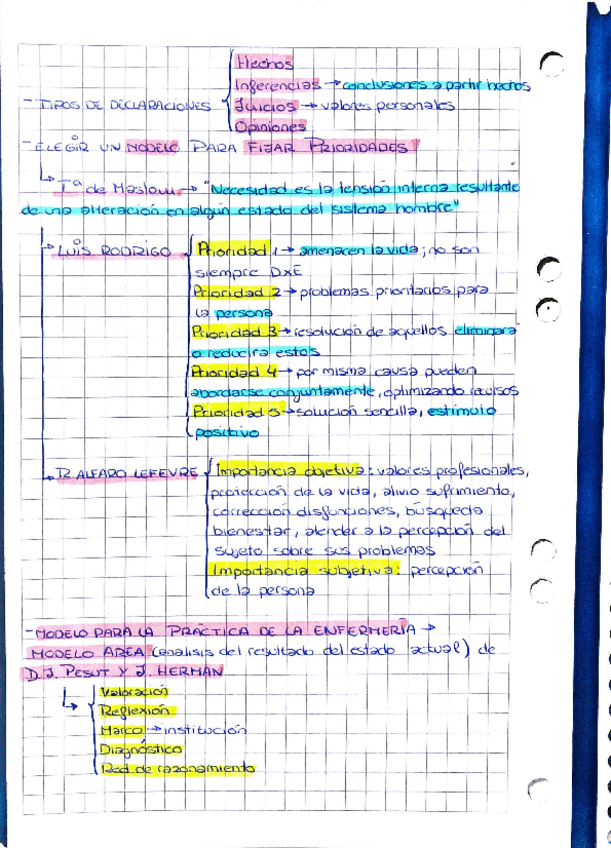 Hechos
Inferencias → conclusiones a partir hechos
- TIPOS DE DECLARACIONES Juicios → valores personales
Opiniones
- ELEGIR UN MODELO PARA FIJAR PRIORIDADES
↳ Tª de Maslow → "Necesidad es la tensión interna resultante
de una alteración en algún estado del sistema hombre"
→ LUIS RODRIGO Prioridad 1 → amenacen la vida; no son
siempre DxE
Prioridad 2 → problemas prioritarios para
la persona
Prioridad 3 → resolución de aquellos eliminará
o reducirá estos
Prioridad 4 → por misma causa pueden
abordarse conjuntamente, optimizando recursos
Prioridad 5 → solución sencilla, estímulo
positivo
→ R ALFARO LEFEVRE Importancia objetiva: valores profesionales,
protección de la vida, alivio sufrimiento,
corrección disfunciones, búsqueda
bienestar, atender a la percepción del
sujeto sobre sus problemas
Importancia subjetiva: percepción
de la persona
- MODELO PARA LA PRÁCTICA DE LA ENFERMERÍA →
MODELO AREA (análisis del resultado del estado actual) de
D.J. PESUT Y J. HERMAN
↳ Valoración
Reflexión
Marco → institución
Diagnóstico
Red de razonamiento